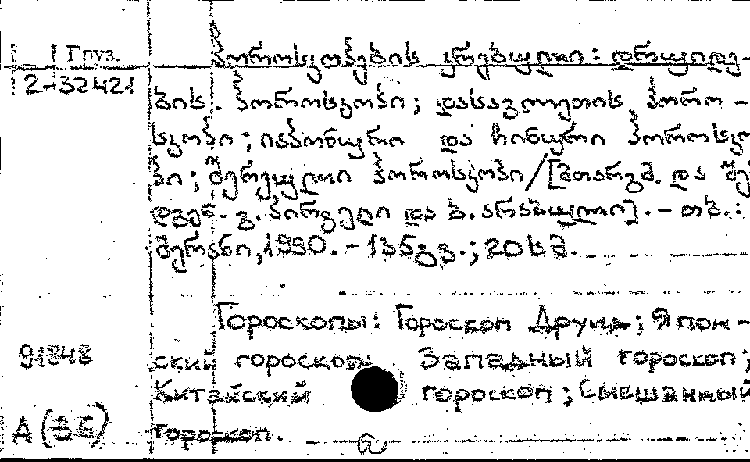 Груз.
2-32421
ჰოროსკოპების კრებული: დრუიდე-
ბის. ჰოროსკოპი; დასავლეთის ჰორო-
სკოპი; იაპონური და ჩინური ჰოროსკო
პი; შერეული ჰოროსკოპი/[მთარგმ. და შე
დგ. გ. და ბ. არაბული]. - თბ.:
მერანი, 1990. - 135გვ.; 20სმ.
Гороскопы: Гороскоп Друид; Япон-
ский гороскоп; Западный гороскоп;
Китайский гороскоп; Смешанный
гороскоп.
91848
А